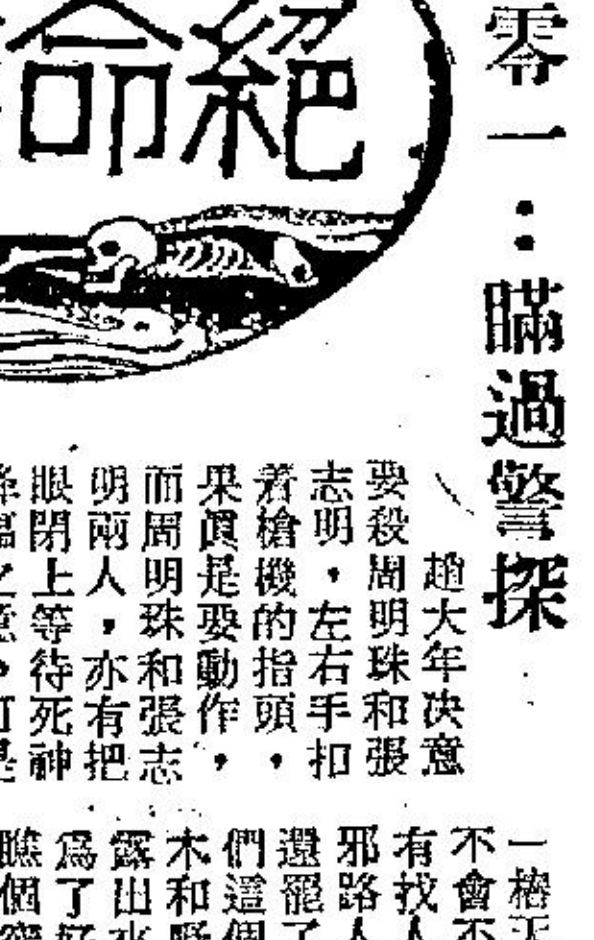 零一：瞞過警探
絕命
趙大年决意
要殺周明珠和張
志明，左右手扣
着槍機的指頭，
果眞是要動作，
而周明珠和張志
明兩人，亦有把
眼閉上等待死神
一樁天
不會不
有找人
邪路人
還罷了
們這個
木和野
露出水
爲了好
瞧個